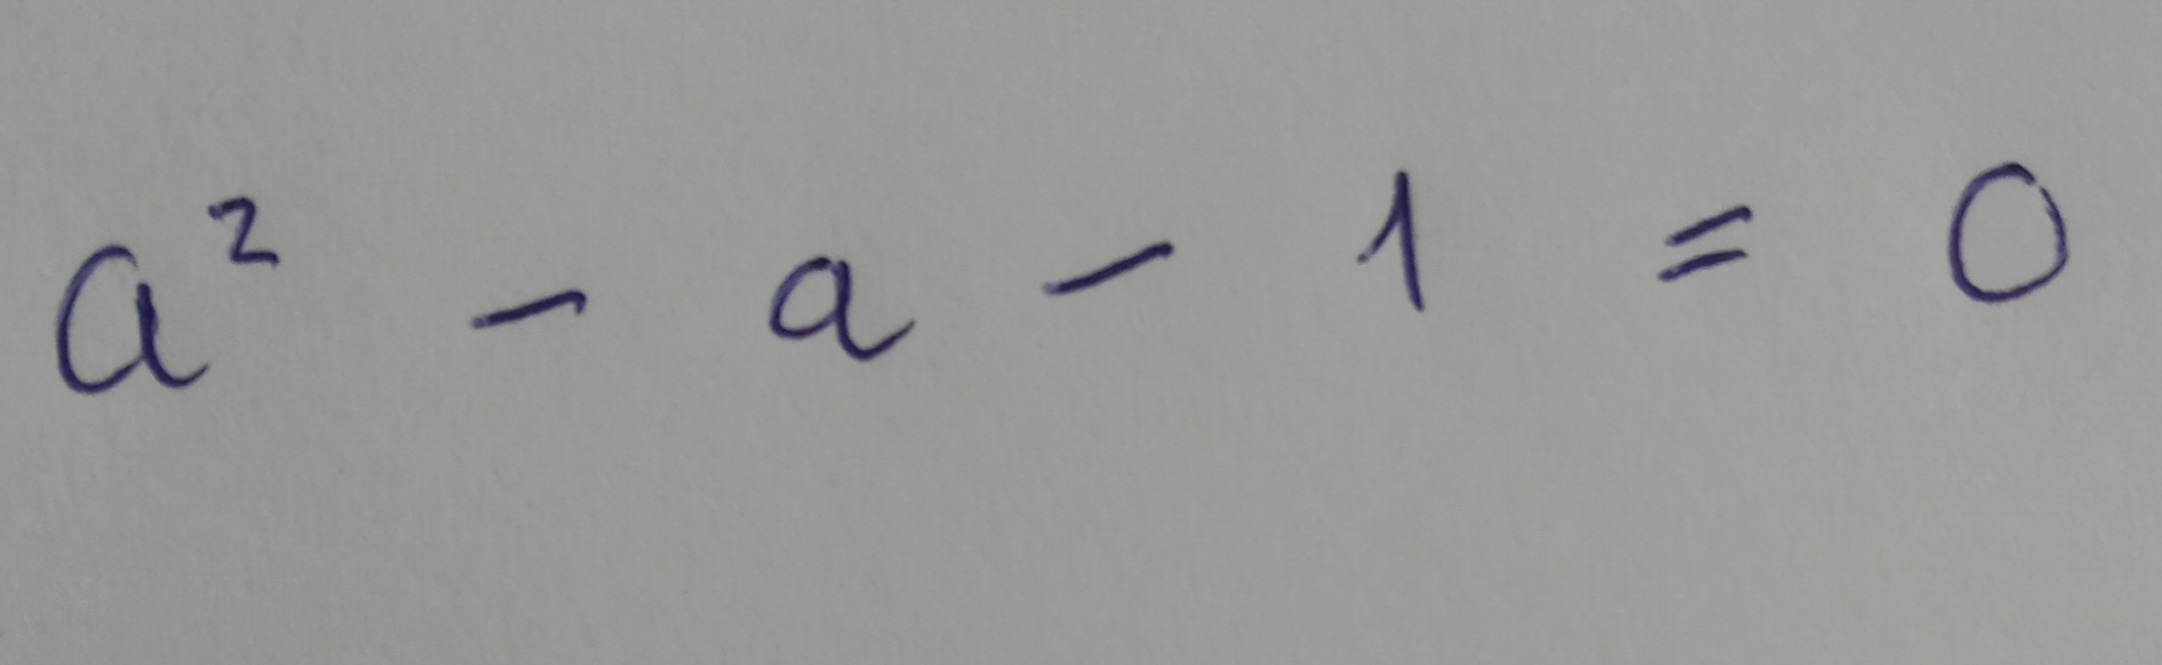 a² - a - 1 = 0